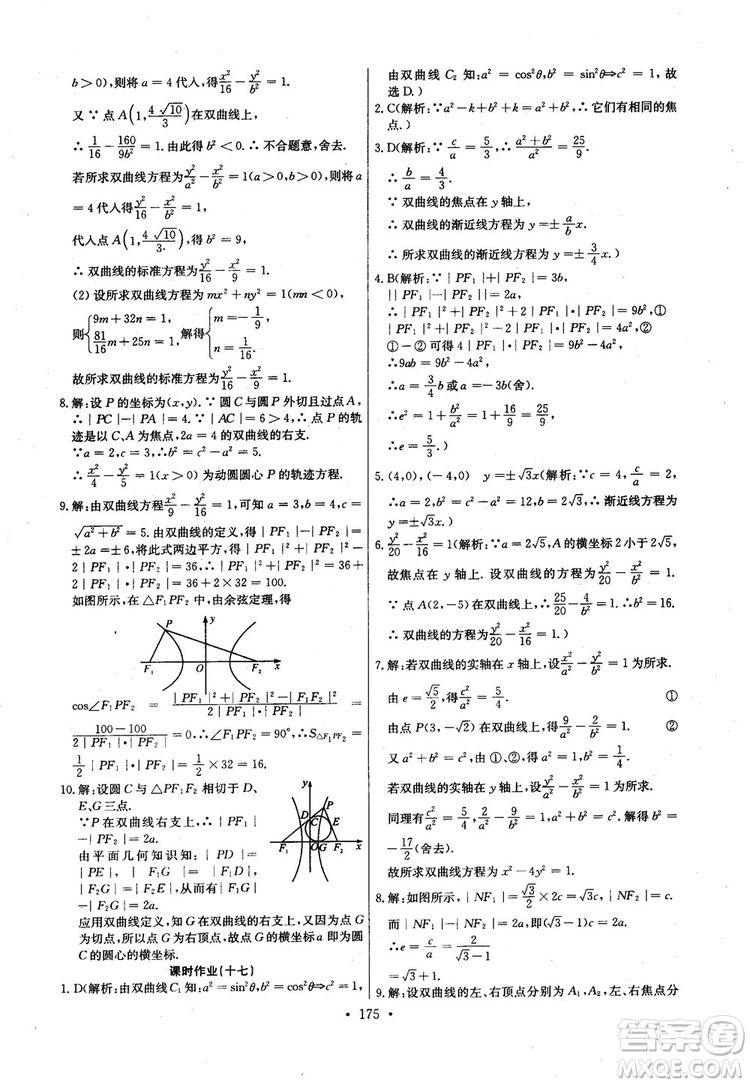 b>0),则将 a=4 代入,得 x²/16 − y²/b² = 1.
又∵点 A(1, 4√10/3) 在双曲线上,
∴ 1/16 − 160/9b² = 1. ∴ b²<0. ∴ 不合题意,舍去.
若所求双曲线方程为 y²/a² − x²/b² = 1(a>0,b>0),则将 a
=4 代入得 y²/16 − x²/b² = 1,
代入点 A(1, 4√10/3.) 得 b²=9,
∴ 双曲线的标准方程为 y²/16 − x²/9 = 1.
(2) 设所求双曲线方程为 mx²+ny²=1(mn<0),
则{9m+32n=1, 81/16 m+25n=1, 解得{m=−1/9, n=1/16.
故所求双曲线的标准方程为 y²/16 − x²/9 = 1.
8. 解:设 P 的坐标为(x,y). ∵ 圆 C 与圆 P 外切且过点 A,
∴ | PC |−| PA |=4. ∵ | AC |=6>4, ∴ 点 P 的轨
迹是以 C、A 为焦点,2a=4 的双曲线的右支.
∵a=2,c=3,∴b²=c²−a²=5.
∴ x²/4 − y²/5 = 1(x>0)为动圆圆心 P 的轨迹方程.
9. 解:由双曲线方程 x²/9 − y²/16 = 1,可知 a=3,b=4,c=
√a²+b² = 5. 由双曲线的定义,得 | PF₁ |−| PF₂ |=
±2a=±6,将此式两边平方,得 | PF₁ |²+| PF₂ |²−
2 | PF₁ |•| PF₂ |=36,∴| PF₁ |²+| PF₂ |²=36+
2 | PF₁ |•| PF₂ |=36+2×32=100.
如图所示,在△F₁PF₂ 中,由余弦定理,得
y
P
F₁ O F₂ x
cos∠F₁PF₂ = (| PF₁ |²+| PF₂ |²−| F₁F₂ |²)/(2 | PF₁ |•| PF₂ |) =
(100−100)/(2 | PF₁ |•| PF₂ |) = 0,∴∠F₁PF₂=90°,∴S△F₁PF₂ =
1/2 | PF₁ |•| PF₂ | = 1/2 ×32=16.
10. 解:设圆 C 与 △PF₁F₂ 相切于 D、
E、G 三点.
∵P 在双曲线右支上,∴| PF₁ |
−| PF₂ |=2a.
由平面几何知识知:| PD |=
| PE |, | F₁G |=| F₁D |,
| F₂G |=| F₂E |,∴| F₁G |−| F₂G |=2a.
y
P
D
C E
F₁ O G F₂ x
应用双曲线定义,知 G 在双曲线的右支上,又因为点 G
为切点,所以点 G 为右顶点,故点 G 的横坐标 a 即为圆
C 的圆心的横坐标.
课时作业(十七)
1. D(解析:由双曲线 C₁ 知:a²=sin²θ,b²=cos²θ⇒c²=1,
由双曲线 C₂ 知:a²=cos²θ,b²=sin²θ⇒c²=1,故
选 D.)
2. C(解析:∵a²−k+b²+k=a²+b²,∴ 它们有相同的焦
点.)
3. D(解析:∵ c/a = 5/3,∴ (a²+b²)/a² = 25/9.
∴ b/a = 4/3.
∵ 双曲线的焦点在 y 轴上,
∴ 双曲线的渐近线方程为 y=± a/b x.
∴ 所求双曲线的渐近线方程为 y=± 3/4 x.)
4. B(解析:∵ | PF₁ |+| PF₂ |=3b,
|| PF₁ |−| PF₂ ||=2a,
∴ | PF₁ |²+| PF₂ |²+2 | PF₁ |•| PF₂ |=9b²,①
| PF₁ |²+| PF₂ |²−2 | PF₁ |•| PF₂ |=4a²,②
①−② 可得4 | PF₁ |•| PF₂ |=9b²−4a²,
∴9ab=9b²−4a²,
∴a= 3/4 b或a=−3b(舍去).
∴e²=1+ b²/a² =1+ 16/9 = 25/9,
∴e= 5/3.)
5. (4,0),(−4,0) y=±√3x(解析:∵c=4, c/a =2,
∴a=2,b²=c²−a²=12,b=2√3,∴ 渐近线方程为
y=±√3x.)
6. y²/20 − x²/16 =1(解析:∵a=2√5,A 的横坐标 2 小于2√5,
故焦点在 y 轴上. 设双曲线的方程为 y²/20 − x²/b² = 1.
∵ 点 A(2,−5)在双曲线上,∴ 25/20 − 4/b² =1. ∴b²=16.
∴ 双曲线的方程为 y²/20 − x²/16 = 1.)
7. 解:若双曲线的实轴在 x 轴上,设 x²/a² − y²/b² =1 为所求.
由 e= √5/2,得 c²/a² = 5/4. ①
由点 P(3,−√2)在双曲线上,得 9/a² − 2/b² = 1. ②
又 a²+b²=c²,由①②得 a²=1,b²= 1/4.
若双曲线的实轴在 y 轴上,设 y²/a² − x²/b² =1 为所求.
同理有 c²/a² = 5/4, 2/a² − 9/b² =1,a²+b²=c². 解得 b²=
− 17/2 (舍去).
故所求双曲线方程为 x²−4y²=1.
8. 解:如图,| NF₁ |= √3/2 ×2c=√3c, | NF₂ |=c.
而 | NF₁ |−| NF₂ |=2a,即(√3−1)c=2a,
∴e= c/a = 2/(√3−1) = √3+1.
9. 解:设双曲线的左、右顶点分别为 A₁,A₂,左、右焦点分
• 175 •
答案圈
MXQE.COM